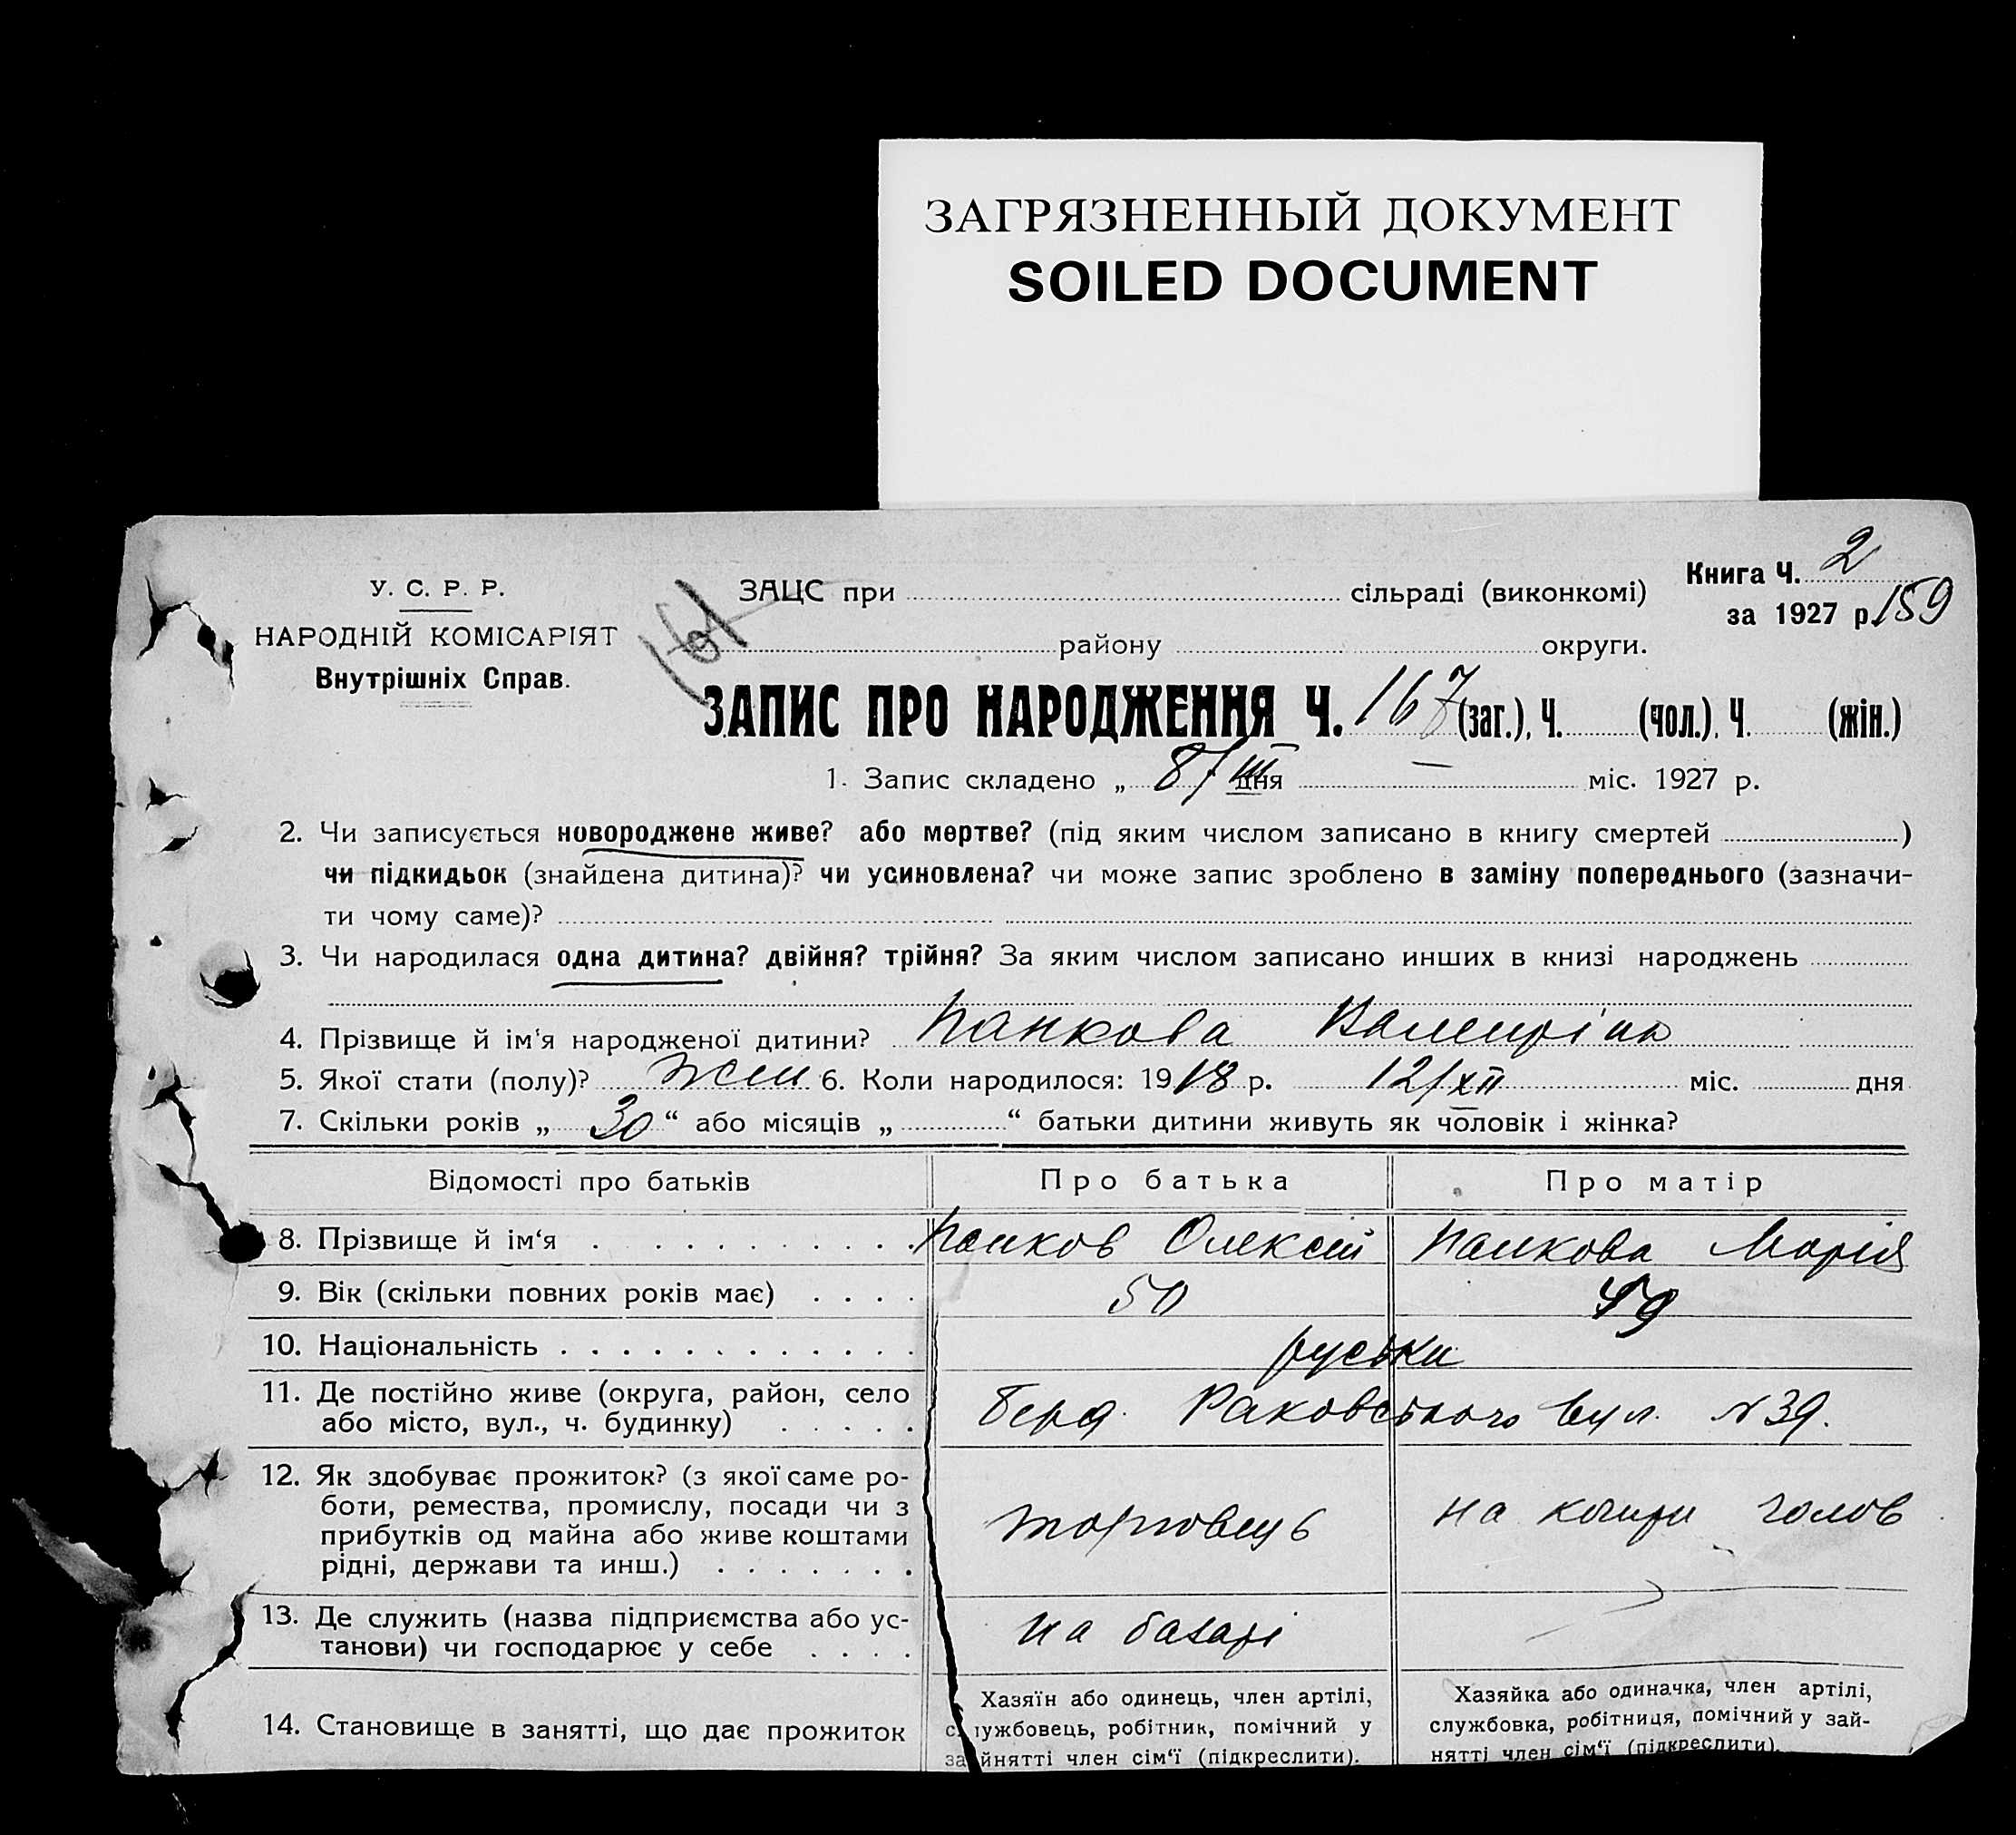 ЗАГРЯЗНЕННЫЙ ДОКУМЕНТ
SOILED DOCUMENT
Книга Ч. 2
за 1927 р. 159
У. С. Р. Р.
НАРОДНІЙ КОМІСАРІЯТ
Внутрішніх Справ.
161
ЗАЦС при сільраді (виконкомі)
району округи.
ЗАПИС ПРО НАРОДЖЕННЯ Ч. 167 (заг.), Ч. (чол.), Ч. (жін.)
1. Запис складено „ 8/III дня — міс. 1927 р.
2. Чи записується новороджене живе? або мертве? (під яким числом записано в книгу смертей )
чи підкидьок (знайдена дитина)? чи усиновлена? чи може запис зроблено в заміну попереднього (зазначи-
ти чому саме)?
3. Чи народилася одна дитина? двійня? трійня? За яким числом записано инших в книзі народжень
4. Прізвище й ім'я народженої дитини? Панкова
5. Якої стати (полу)? жін 6. Коли народилося: 1918 р. 12/XII міс. дня
7. Скільки років „ 30 “ або місяців „ “ батьки дитини живуть як чоловік і жінка?
Відомості про батьків Про батька Про матір
8. Прізвище й ім'я Панков Олексій Панкова Марія
9. Вік (скільки повних років має) 50 49
10. Національність руськи
11. Де постійно живе (округа, район, село
або місто, вул., ч. будинку) Берд. Раковського вул. №39.
12. Як здобуває прожиток? (з якої саме ро-
боти, ремества, промислу, посади чи з
прибутків од майна або живе коштами
рідні, держави та инш.) торговець на кошти голов
13. Де служить (назва підприємства або ус-
танови) чи господарює у себе на базарі
14. Становище в занятті, що дає прожиток
Хазяїн або одинець, член артілі,
службовець, робітник, помічний у
зайнятті член сім'ї (підкреслити).
Хазяйка або одиначка, член артілі,
службовка, робітниця, помічний у зай-
нятті член сім'ї (підкреслити).